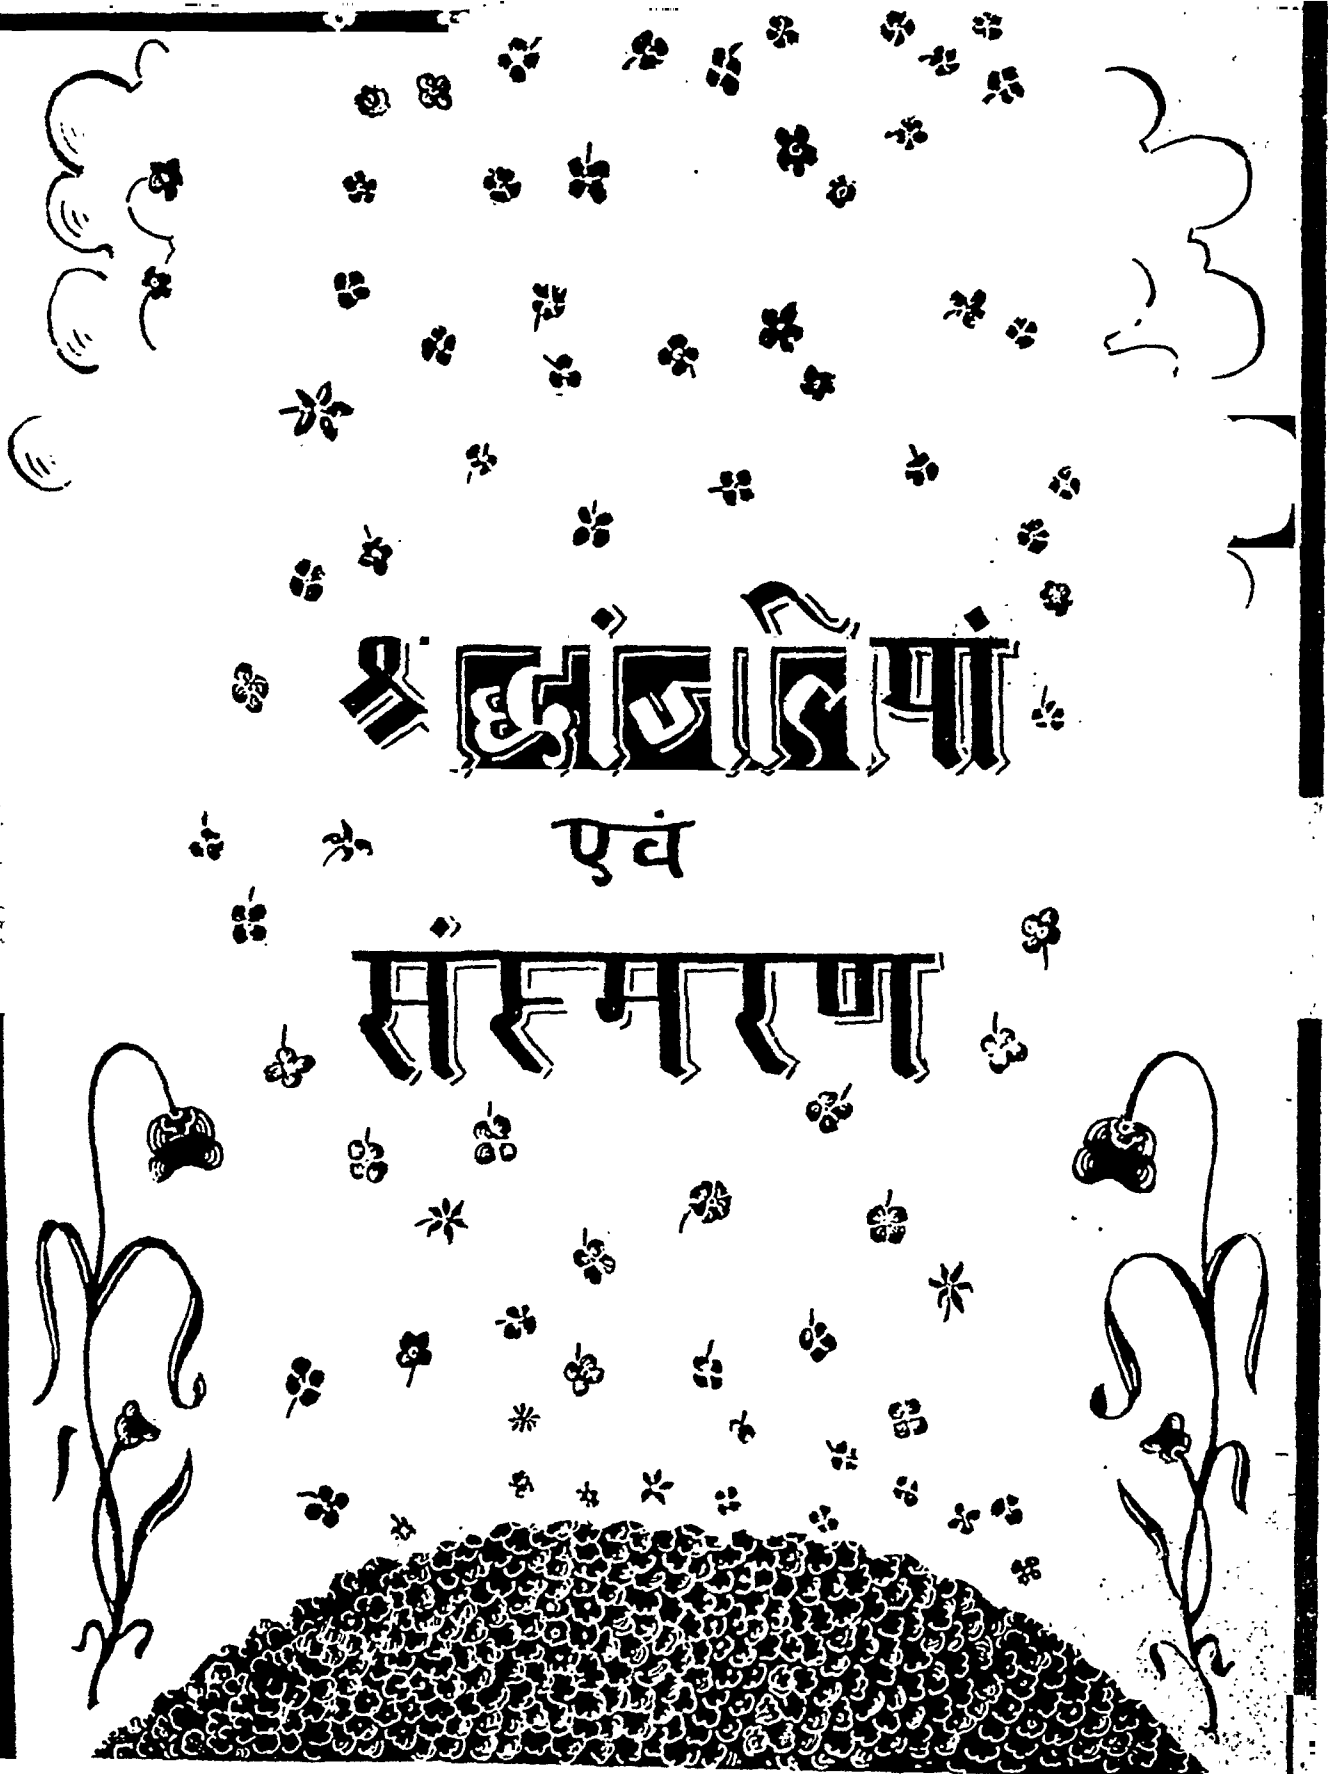 श्रद्धांजलियां
एवं
संस्मरण